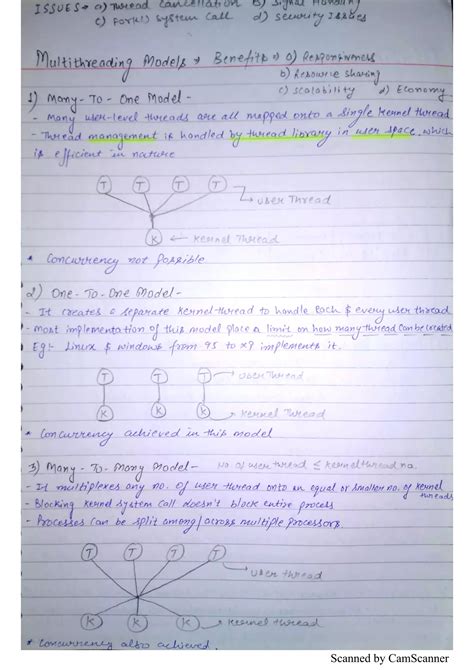 ISSUES → a) Thread Cancellation B) Signal Handling
c) fork() System Call d) Security Issues
Multithreading Models → Benefits → a) Responsiveness
b) Resource Sharing
c) scalability d) Economy
1) Many-To-One Model-
- Many user-level threads are all mapped onto a single kernel thread
- Thread management is handled by thread library in user space, which
is efficient in nature
T T T T
user Thread
K ← Kernel Thread
* Concurrency not Possible
2) One-To-One Model-
- It creates a separate kernel-thread to handle each & every user thread
- most implementation of this model place a limit on how many thread can be created
Eg:- Linux & windows from 95 to XP implements it.
T T T → user Thread
K K K → Kernel Thread
* Concurrency achieved in this model
3) Many-To-Many Model- No of user thread ≤ kernel thread no.
- It multiplexes any no. of user thread onto an equal or smaller no. of kernel
threads
- Blocking kernel system call doesn't block entire process
- Processes can be split among/across multiple processors.
T T T T
→ user thread
K K K K → kernel thread
* Concurrency also achieved.
Scanned by CamScanner